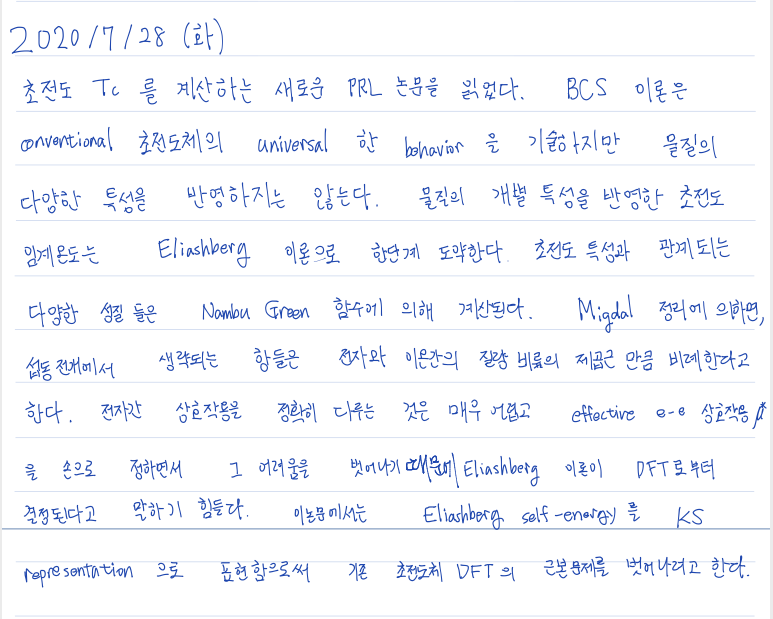 2020/7/28 (화)
초전도 Tc 를 계산하는 새로운 PRL 논문을 읽었다. BCS 이론은
conventional 초전도체의 universal 한 behavior 을 기술하지만 물질의
다양한 특성을 반영하지는 않는다. 물질의 개별 특성을 반영한 초전도
임계온도는 Eliashberg 이론으로 한단계 도약한다. 초전도 특성과 관계되는
다양한 성질 들은 Nambu Green 함수에 의해 계산된다. Migdal 정리에 의하면,
섭동전개에서 생략되는 항들은 전자와 이온간의 질량 비율의 제곱근 만큼 비례한다고
한다. 전자간 상호작용을 정확히 다루는 것은 매우 어렵고 effective e-e 상호작용 μ*
을 손으로 정하면서 그 어려움을 벗어나기 때문에 Eliashberg 이론이 DFT로부터
결정된다고 말하기 힘들다. 이논문에서는 Eliashberg self-energy 를 KS
representation 으로 표현함으로써 기존 초전도체 DFT의 근본문제를 벗어나려고 한다.